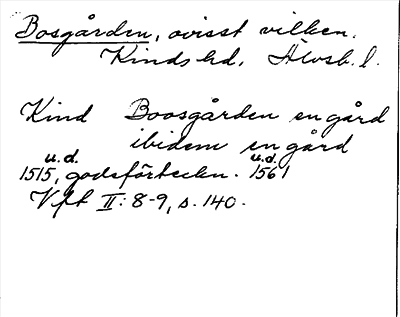 Bosgården, ovisst vilken.
Kinds hd, Älvsb. l.
Kind Boosgården en gård
ibidem en gård
u.d. u.d.
1515, godsförteckn. 1561
Vft II: 8-9, s. 140.